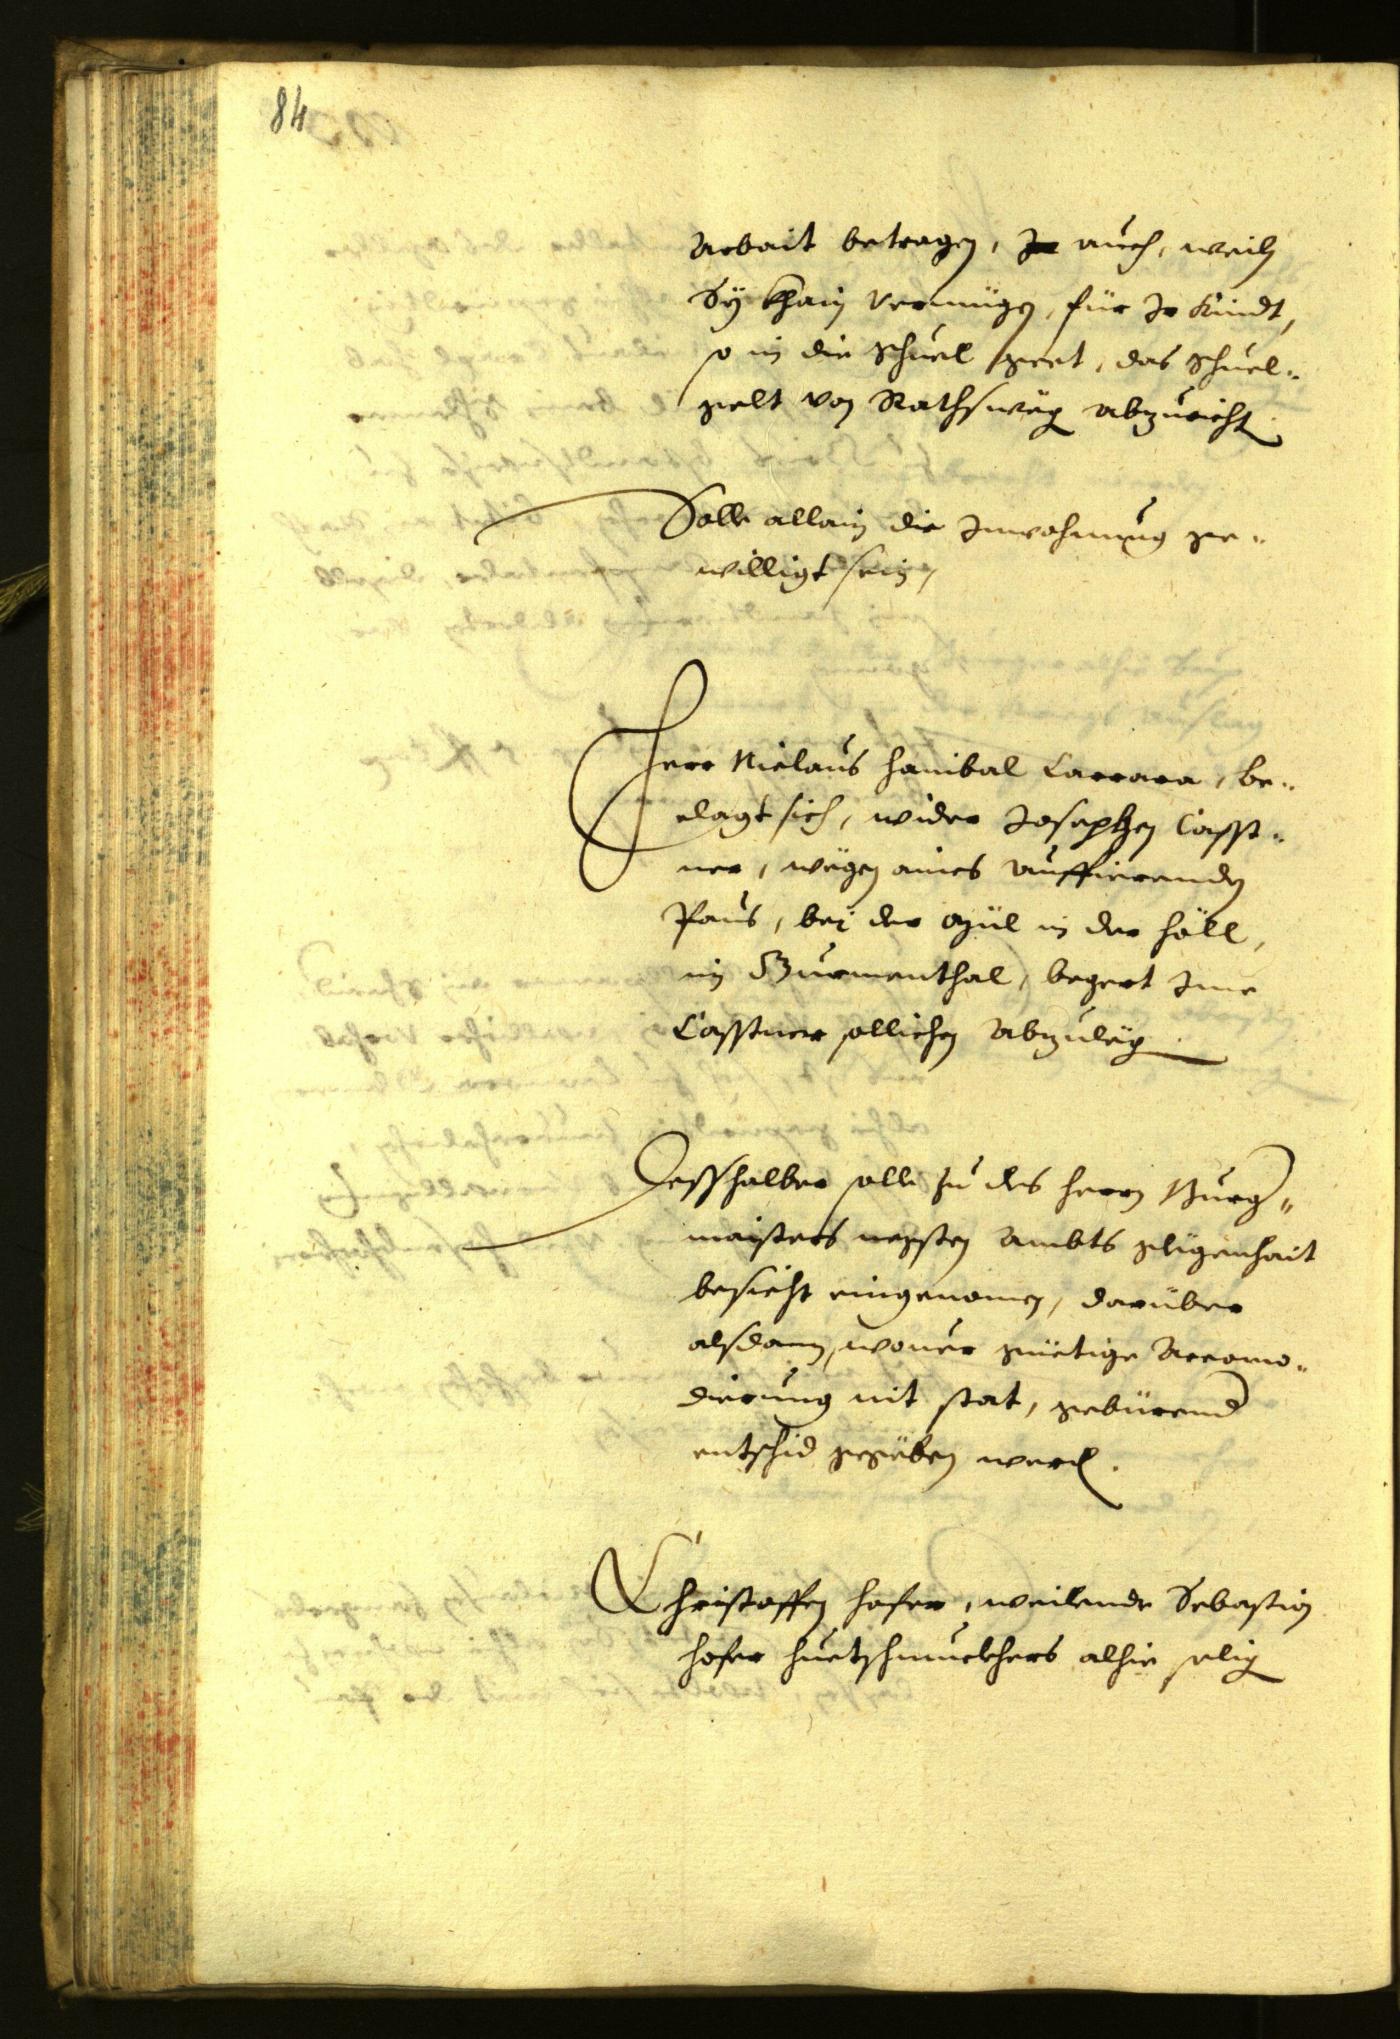 84
Arbait betragen, auch, weiln
Sÿ khain Vermügen, für Ir Kindt,
so in die Schuel geet, das Schuel-
gelt von Rathsweg abzuricht.
Solle allain die Inwohnung ge-
willigt sein,
Herr Niclaus Hanibal Carrara, be-
clagt sich, wider Josephen Casst-
ner, wegen aines auffierenden
Paus, bej der Mül in der Höll,
im Surmenthal, begert Ime
Casstner sollichen abzuleg.
Desshalber solle zu des Herrn Burg-
maisters negsten Ambts glegenhait
besicht eingenomen, darüber
alsdann, wouer güetige Accomo-
dierung nit stat, gebürend
entschid gegeben werd.
Christoffen Hofer, weilende Sebastion
Hofer Huetschmuckhers alhie selig